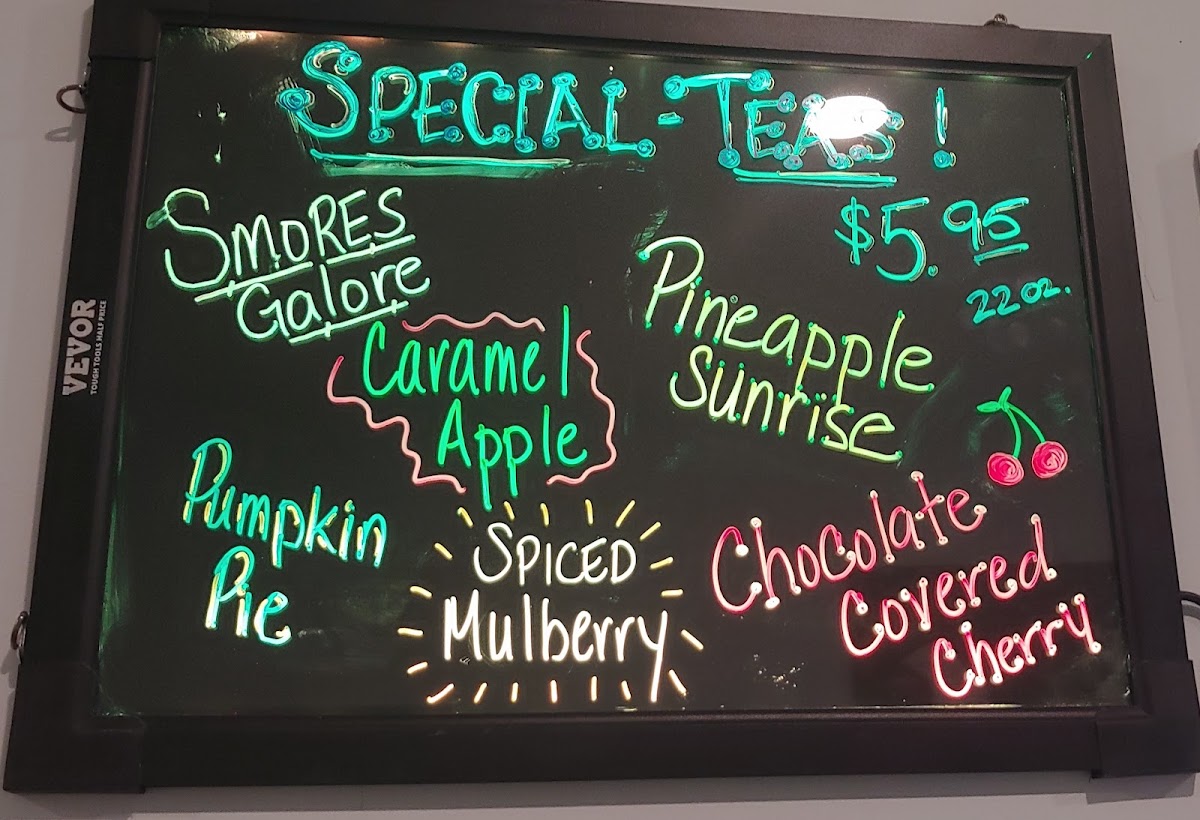 SPECIAL-TEAS!
$5.95
22 oz.
SMORES
Galore
Caramel
Apple
Pineapple
Sunrise
Pumpkin
Pie
SPICED
Mulberry
Chocolate
Covered
Cherry
VEVOR
TOUGH TOOLS HALF PRICE